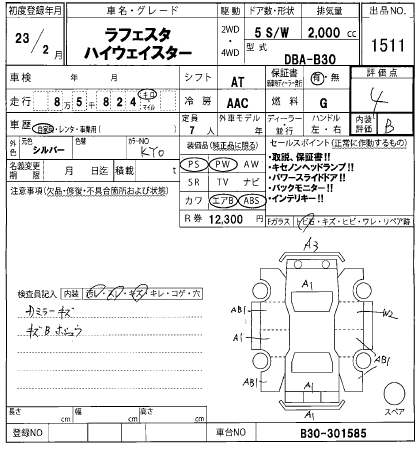 初度登録年月 車名・グレード 駆動 ドア数・形状 排気量 出品NO.
23/2月 ラフェスタ ハイウェイスター 2WD・4WD 5 S/W 2,000 cc 1511
型式 DBA-B30
車検 年 月 シフト AT 保証書 有・無 評価点 4
走行 8万5千824 キロ マイル 冷房 AAC 燃料 G
車歴 自家用・レンタ・事業用( ) 定員 7人 外車モデル 年 ディーラー・並行 ハンドル 左・右 内装評価 B
外色 元色 シルバー 色替 カラーNO KY0
装備品(純正品に限る) セールスポイント(正常に作動するもの)
名義変更期限 月 日迄 積載 t PS PW AW
・取説、保証書!!
・キセノンヘッドランプ!!
・パワースライドドア!!
・バックモニター!!
・インテリキー!!
注意事項(欠品・修復・不具合箇所および状態) SR TV ナビ
カワ エアB ABS
R券 12,300 円
Fガラス トビ石・キズ・ヒビ・ワレ・リペア跡
A3
検査員記入 内装 汚レ・スレ・キズ・キレ・コゲ・穴
A1
AB1
W2
キズ
A1
A1
AB1
キズB
AB1
AB1
A1
スペア
長さ cm 幅 cm 高さ cm
登録NO 車台NO B30-301585